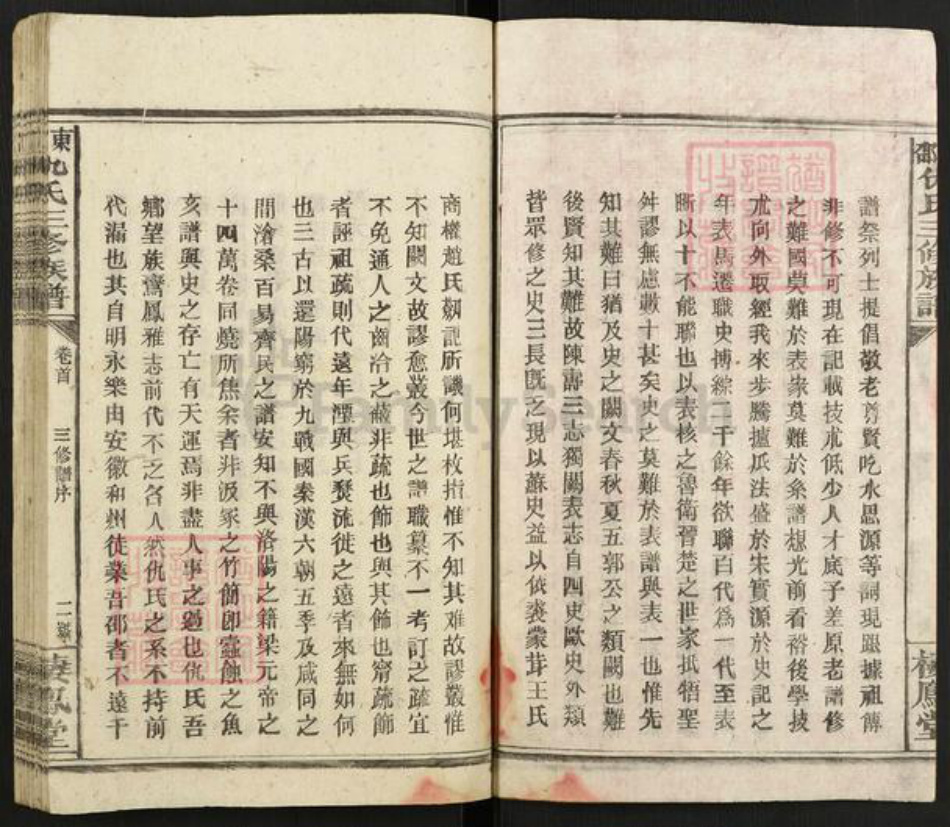 譜祭列士提倡敬老尊賢吃水思源等詞現跟據祖傳
非修不可現在記載技朮低少人才底子差原老譜修
之難國莫難於表家莫難於系譜想光前看裕後學技
朮向外取經我來步騰攄瓜法盛於宋實源於史記之
年表馬遷職史博綜二千餘年欲聯百代爲一代至表
斷以十不能聯也以表核之魯衛晉楚之世家抵牾聖
舛謬無慮數十甚矣史之莫難於表譜與表一也惟先
知其難曰猶及史之闕文春秋夏五郭公之類闕也難
後賢知其難故陳壽三志獨闕表志自四史歐史外類
皆眾修之史三長既乏現以蘇史益以依裘蒙茸王氏
商榷趙氏劄記所譏何堪枚指惟不知其难故謬叢惟
不知闕文故謬愈叢今世之譜職纂不一考訂之疏宜
不免通人之齒冷之蔽非疏也飾也與其飾也甯疏飾
者誣祖疏則代遠年湮與兵燹流徙之遠者來無如何
也三古以還陽窮於九戰國秦漢六朝五季及咸同之
間滄桑百易齊民之譜安知不與洛陽之籍梁元帝之
十四萬卷同燒所焦余者非汲冢之竹簡卽蠹蝕之魚
亥譜與史之存亡有天運焉非盡人事之過也仇氏吾
鄉望族鸞鳳雅志前代不乏名人然仇氏之系不持前
代漏也其自明永樂由安徽和州徒業吾邵者不遠千
東仇氏三修族譜
卷首
三修譜序
二
棲鳳堂
邵
仇氏三修族譜
棲鳳堂
FamilySearch